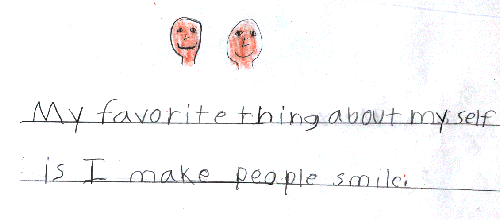 My favorite thing about my self
is I make people smile.